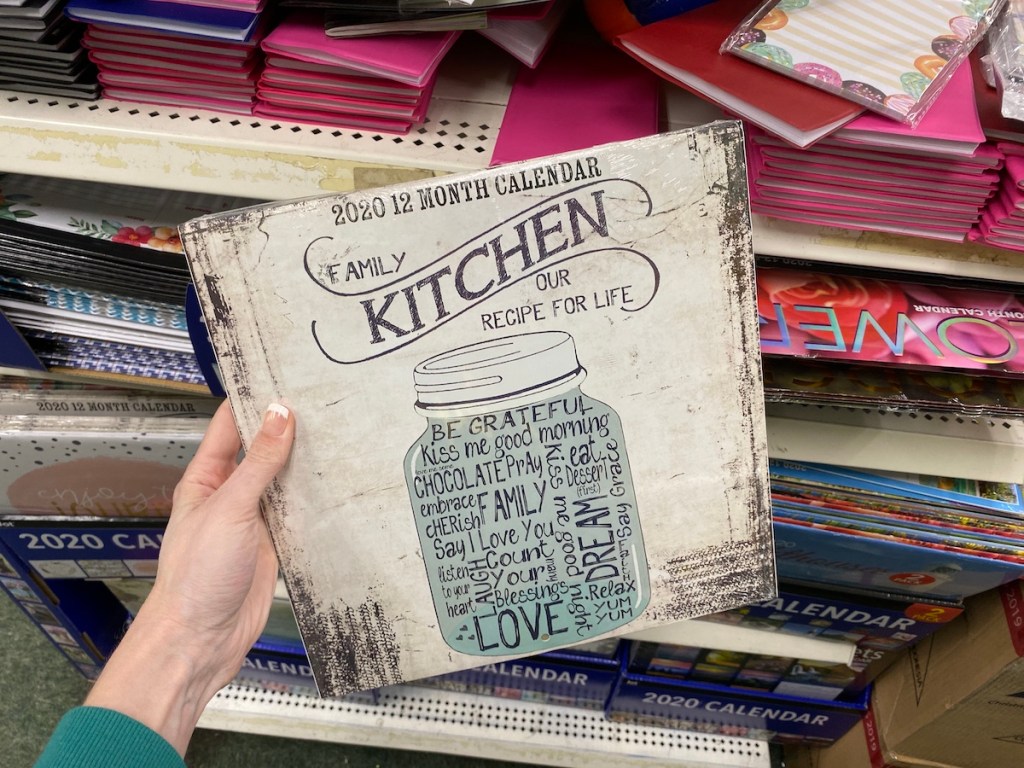 2020 12 MONTH CALENDAR
FAMILY
KITCHEN
OUR
RECIPE FOR LIFE
BE GRATEFUL
Kiss me good morning
CHOCOLATE PrAy
eat
Dessert
(first)
embrace
cHERisH
FAMILY
Say I Love You
Kiss me good night
DREAM
Say Grace
listen
to your
heart
LAUGH
Count
your
Blessings
Relax
YUM
YUM
LOVE
2020 12 MONTH CALENDAR
enjoy
2020 CA
MONTH CALENDAR
OWE
CALENDAR
2
CALENDAR
CALENDAR
2020 CALENDAR
2019
2019